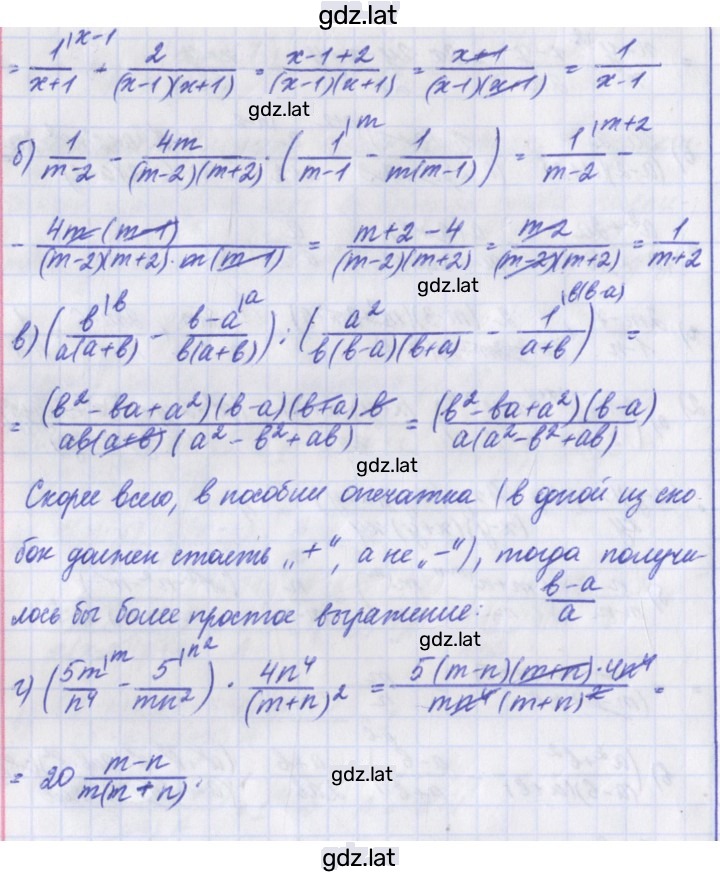 gdz.lat
= 1^{|x-1}/(x+1) + 2/((x-1)(x+1)) = (x-1+2)/((x-1)(x+1)) = (x+1)/((x-1)(x+1)) = 1/(x-1)
gdz.lat
б) 1/(m-2) - 4m/((m-2)(m+2)) · (1^{|m}/(m-1) - 1/(m(m-1))) = 1^{|m+2}/(m-2) -
- 4m(m-1)/((m-2)(m+2)·m(m-1)) = (m+2-4)/((m-2)(m+2)) = (m-2)/((m-2)(m+2)) = 1/(m+2)
gdz.lat
в) (в^{|в}/(a(a+в)) - (в-a)^{|a}/(в(a+в))) : (a²/(в(в-a)(в+a)) - 1^{|в(в-a)}/(a+в)) =
= (в²-вa+a²)(в-a)(в+a)в/(aв(a+в)(a²-в²+aв)) = (в²-вa+a²)(в-a)/(a(a²-в²+aв))
gdz.lat
Скорее всего, в пособии опечатка (в одной из ско-
бок должен стоять „+“, а не „-“), тогда получи-
лось бы более простое выражение: (в-a)/a
gdz.lat
г) (5m^{|m}/n⁴ - 5^{|n²}/(mn²)) · 4n⁴/(m+n)² = 5(m-n)(m+n)·4n⁴/(mn⁴(m+n)²) =
= 20 (m-n)/(m(m+n)).
gdz.lat
gdz.lat